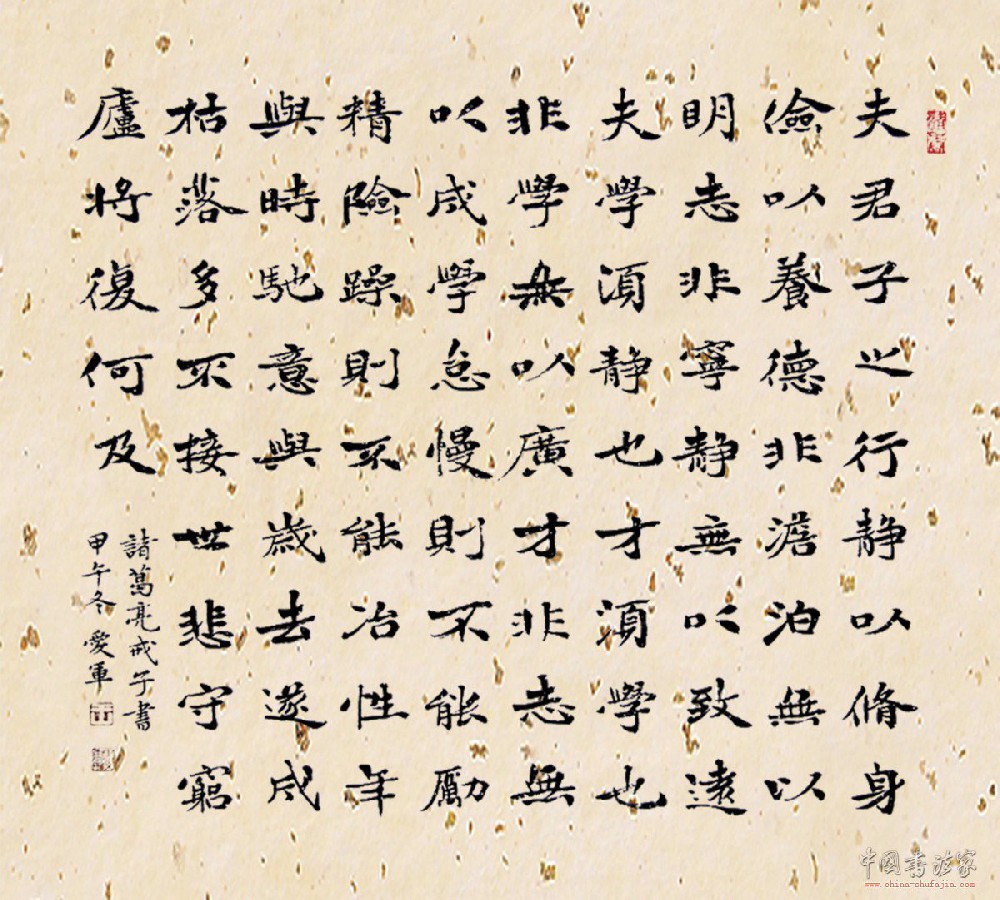 夫君子之行静以脩身
儉以養德非澹泊無以
明志非寧静無以致遠
夫學須静也才須學也
非學無以廣才非志無
以成學怠慢則不能勵
精險躁則不能冶性年
與時馳意與歲去遂成
枯落多不接世悲守窮
廬將復何及
諸葛亮戒子書
甲午冬愛軍
中国书法家
www.china-shufajia.com